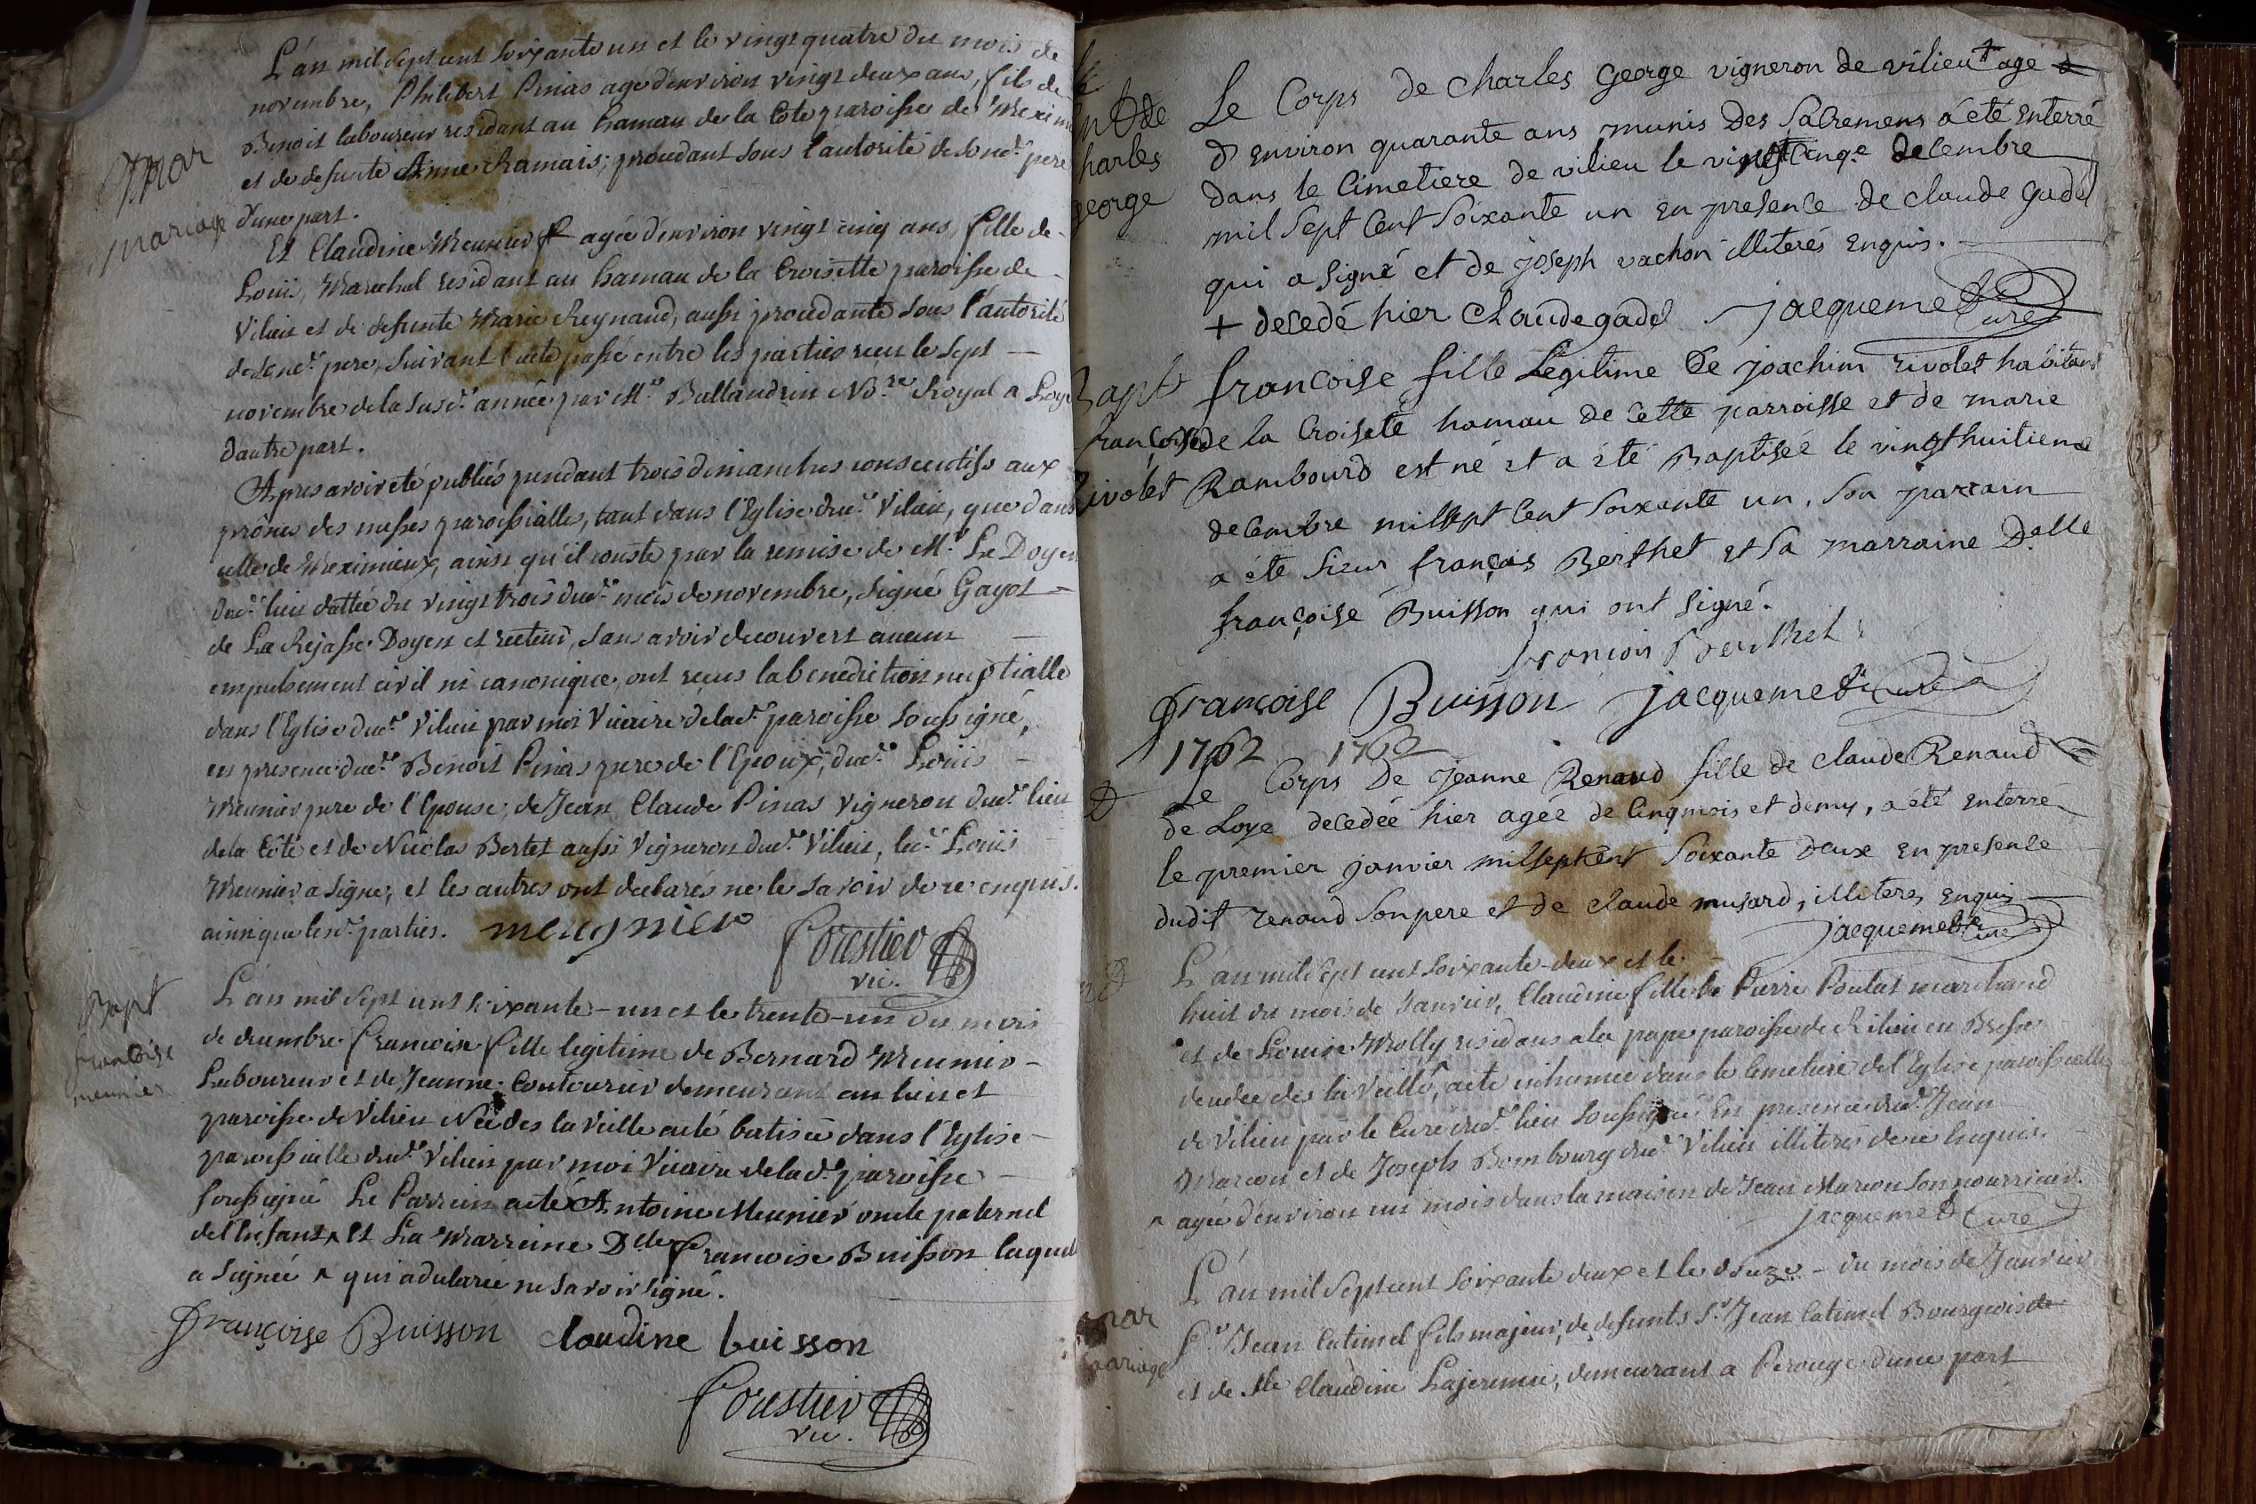 L'an mil sept cent soixante un et le vingt quatre du mois de
novembre, Philibert Pinas agé d'environ vingt deux ans, fils de
Benoit laboureur residant au hamau de la Cote paroisse de Mexim
et de defunte Anne Ramais; procedant sous l'autorité de sond.t pere
d'une part.
mar
mariage
Et Claudine Meunier agée d'environ vingt cinq ans, fille de
Louis, Marechal residant au hamau de la Croisette paroisse de
Vilieu et de defunte Marie Reynaud, aussi procedante sous l'autorité
de sond.t pere, suivant l'acte passé entre les parties recu le sept
novembre de la susd.e année par M.e Ballandrin No.re Royal a Loye
d'autre part.
Apres avoir eté publiés pendant trois dimanches consecutifs aux
prônes des messes paroissialles, tant dans l'Eglise dud.t Vilieu, que dans
celle de Meximieux, ainsi qu'il conste par la remise de M.r Le Doyen
dud.t lieu dattée du vingt trois dud.t mois de novembre, signé Gayot
de La Rejasse Doyen et recteur, sans avoir decouvert aucun
empechement civil ni canonique, ont recus la benediction nuptialle
dans l'Eglise dud.t Vilieu par moi Vicaire de lad.t paroisse soussigné,
en presence dud.t Benoit Pinas pere de l'Epoux, dud.t Louis
Meunier pere de l'Epouse, de Jean Claude Pinas vigneron dud.t lieu
de la Côte et de Nicolas Bertet aussi Vigneron dud.t Vilieu, led.t Louis
Meunier a signé, et les autres ont declarés ne le savoir de ce enquis.
ainsi que lesd.t parties. meugnier
Forestier
vic.
Bapt
francoise
meunier
L'an mil sept cent soixante-un et le trente-un du mois
de decembre francoise fille legitime de Bernard Meunier
Laboureur et de Jeanne Couturier demeurant au lieu et
paroisse de Vilieu Née dès la Veille a eté batisée dans l'Eglise
paroissialle dud.t Vilieu par moi Vicaire de lad.t paroisse
soussigné Le Parrein a eté Antoine Meunier oncle paternel
de l'Enfant ^ et La Marreine D.lle francoise Buisson laquell
a signée ^ qui a declarée ne savoir signé.
françoise Buisson claudine buisson
Forestier
vic.
harles
george
Le Corps de Charles George vigneron de vilieu + agé
d'environ quarante ans munis Des Sacremens a été Enterré
dans le Cimetiere de vilieu le vingtcinq.e decembre
mil Sept Cent Soixante un En presence de claude gadel
qui a Signé et de joseph vachon illiterés Enquis.
+ decedé hier Claude gadel jacquemet Curé
Bapt
francoise
Rivolet
francoise fille Legitime De joachim rivolet habitant
de la Croisete hamau de Cette parroisse et de marie
Rambourd est né et a été Baptisée le vingthuitieme
decembre milsept Cent Soixante un, Son parrain
a été Sieur françois Berthet et Sa marraine Delle
françoise Buisson qui ont signé.
francois Berthet
françoise Buisson jacquemet curé
1762 1762
Le Corps De Jeanne Renaud fille de claude Renaud
de Loye decedée hier agée de Cinq mois et demy, a été Enterré
le premier janvier milseptcent Soixante deux En presence
dudit renaud Son pere et de claude musard, illiteres Enquis
jacquemet Curé
L'an mil sept cent soixante-deux et le
huit du mois de Janvier, Claudine fille de Pierre Poulat marchand
et de Louise Molly residans a la pape paroisse de Rilieu en Bresse
decedée dès la Veille, a eté inhumée dans le Cimetiere de l'Eglise paroissialle
de Vilieu par le Curé dud.t lieu soussigné En presence dud.t Jean
Marcon et de Joseph Bombourg dud.t Vilieu illiterés de ce Enquis.
^ agée d'environ un mois dans la maison de Jean Marcon son nourricier.
jacquemet Curé
mar
mariage
L'an mil sept cent soixante deux et le douze du mois de Janvier
S.r Jean Catimel fils majeur, de defunts S.r Jean Catimel Bourgeois
et de D.lle Claudine Lajerenie, demeurant a Perouge d'une part